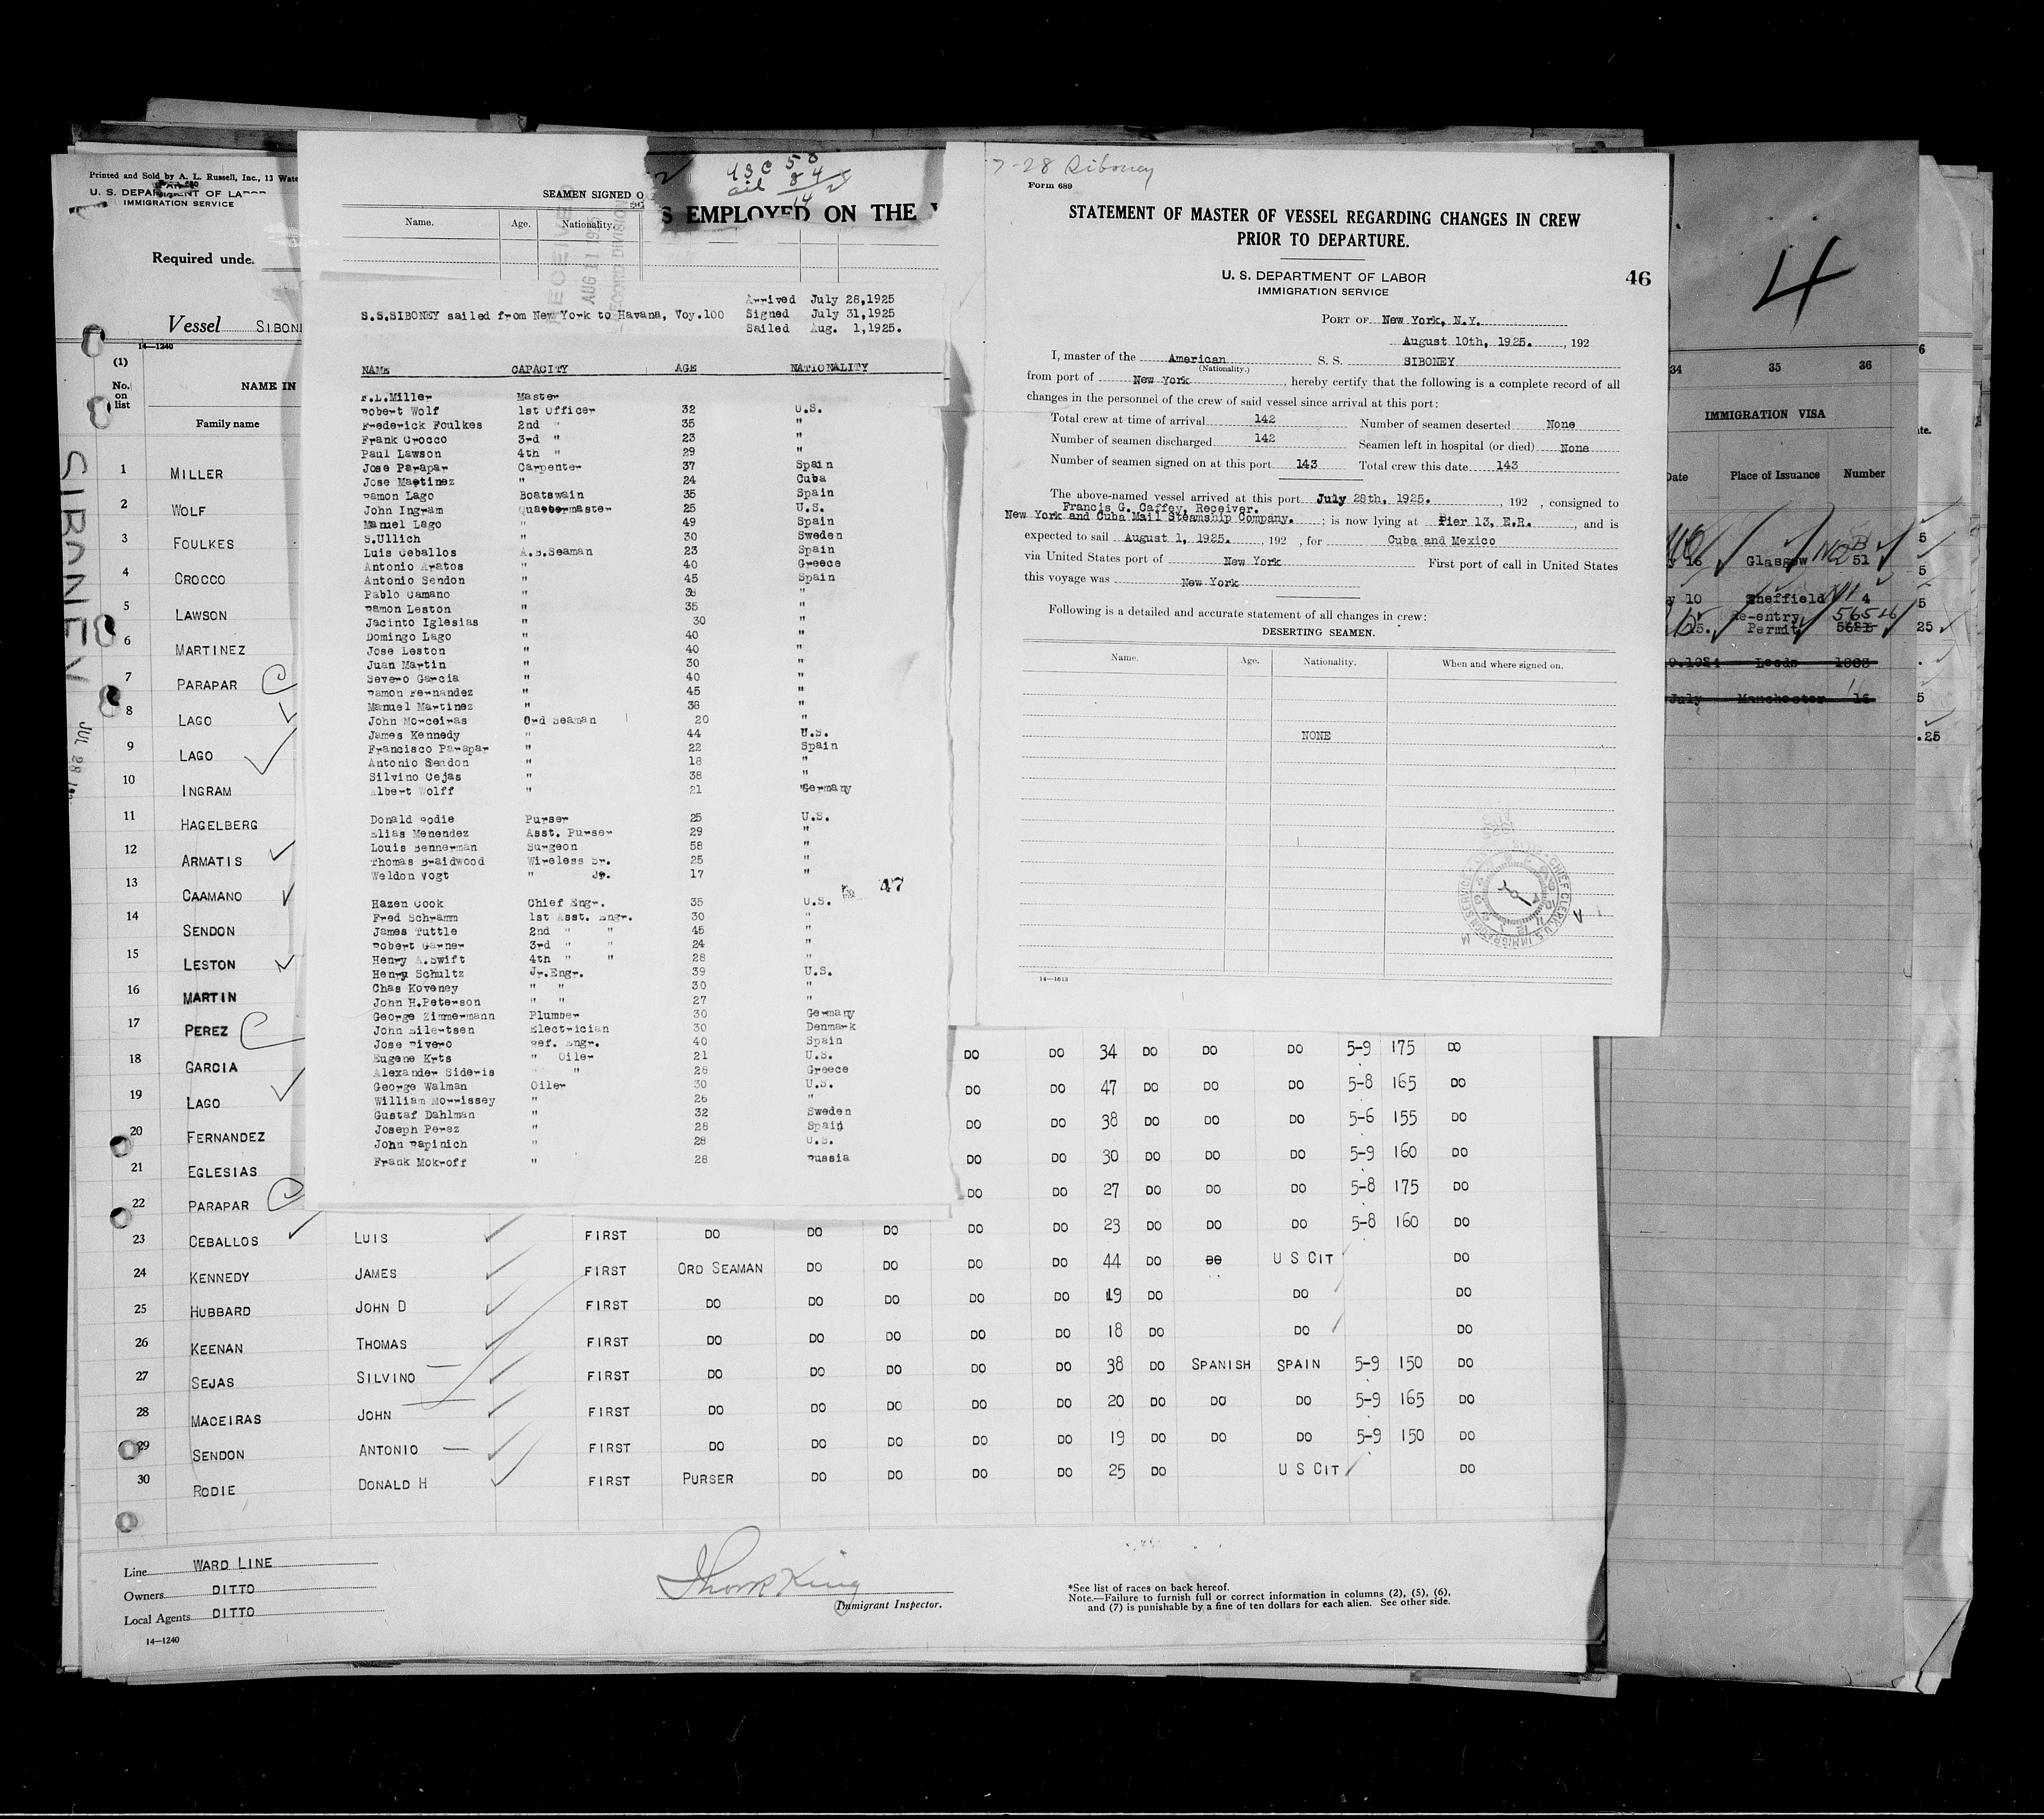 Printed and Sold by A. L. Russell, Inc., 13 Wate
U. S. DEPARTMENT OF LABOR
IMMIGRATION SERVICE
Required unde
Vessel SIBONE
14—1240
(1)
No. on list
NAME IN
Family name
SIBONEY
JUL 28
1 MILLER
2 WOLF
3 FOULKES
4 CROCCO
5 LAWSON
6 MARTINEZ
7 PARAPAR
8 LAGO
9 LAGO
10 INGRAM
11 HAGELBERG
12 ARMATIS
13 CAAMANO
14 SENDON
15 LESTON
16 MARTIN
17 PEREZ
18 GARCIA
19 LAGO
20 FERNANDEZ
21 EGLESIAS
22 PARAPAR
SEAMEN SIGNED O
Name. Age. Nationality.
S EMPLOYED ON THE
RECEIVED
AUG 11 1925
RECORD DIVISION
Arrived July 28,1925
S.S.SIBONEY sailed from New York to Havana, Voy.100 Signed July 31,1925
Sailed Aug. 1,1925.
NAME CAPACITY AGE NATIONALITY
F.L.Miller Master
Robert Wolf 1st Officer 32 U.S.
Frederick Foulkes 2nd " 35 "
Frank Crocco 3rd " 23 "
Paul Lawson 4th " 29 "
Jose Parapar Carpenter 37 Spain
Jose Martinez " 24 Cuba
Ramon Lago Boatswain 35 Spain
John Ingram Quartermaster 25 U.S.
Manuel Lago " 49 Spain
S.Ullich " 30 Sweden
Luis Ceballos A.B.Seaman 23 Spain
Antonio Aratos " 40 Greece
Antonio Sendon " 45 Spain
Pablo Camano " 38 "
Ramon Leston " 35 "
Jacinto Iglesias " 30 "
Domingo Lago " 40 "
Jose Leston " 40 "
Juan Martin " 30 "
Severo Garcia " 40 "
Ramon Fernandez " 45 "
Manuel Martinez " 38 "
John Morceiras Ord Seaman 20 "
James Kennedy " 44 U.S.
Francisco Parapar " 22 Spain
Antonio Sendon " 18 "
Silvino Cejas " 38 "
Albert Wolff " 21 Germany
Donald Rodie Purser 25 U.S.
Elias Menendez Asst. Purser 29 "
Louis Bennerman Surgeon 58 "
Thomas Braidwood Wireless Sr. 25 "
Weldon Vogt " Jr. 17 "
47
Hazen Cook Chief Engr. 35 U.S.
Fred Schramm 1st Asst. Engr. 30 "
James Tuttle 2nd " " 45 "
Robert Garner 3rd " " 24 "
Henry A.Swift 4th " " 28 "
Henry Schultz Jr.Engr. 39 U.S.
Chas Koveney " " 30 "
John H.Peterson " " 27 "
George Zimmermann Plumber 30 Germany
John Eilertsen Electrician 30 Denmark
Jose Rivero Ref. Engr. 40 Spain
Eugene Krts " Oiler 21 U.S.
Alexander Sideris " " 28 Greece
George Walman Oiler 30 U.S.
William Morrissey " 26 "
Gustaf Dahlman " 32 Sweden
Joseph Perez " 28 Spain
John Rapinich " 28 U.S.
Frank Mokroff " 28 Russia
7-28 Siboney
Form 689
STATEMENT OF MASTER OF VESSEL REGARDING CHANGES IN CREW
PRIOR TO DEPARTURE.
U. S. DEPARTMENT OF LABOR
IMMIGRATION SERVICE
46
PORT OF New York, N.Y.
August 10th, 1925. , 192
I, master of the American S. S. SIBONEY
(Nationality.)
from port of New York , hereby certify that the following is a complete record of all
changes in the personnel of the crew of said vessel since arrival at this port:
Total crew at time of arrival 142 Number of seamen deserted None
Number of seamen discharged 142 Seamen left in hospital (or died) None
Number of seamen signed on at this port 143 Total crew this date 143
The above-named vessel arrived at this port July 28th, 1925. , 192 , consigned to
Francis G. Caffey, Receiver.
New York and Cuba Mail Steamship Company. ; is now lying at Pier 13, E.R. , and is
expected to sail August 1, 1925. , 192 , for Cuba and Mexico
via United States port of New York First port of call in United States
this voyage was New York
Following is a detailed and accurate statement of all changes in crew:
DESERTING SEAMEN.
Name. Age. Nationality. When and where signed on.
NONE
14—1613
4
34 35 36
IMMIGRATION VISA
Date Place of Issuance Number
16 Glasgow 51
10 Sheffield 4
15. Re-entry Permit 5621
1924 Leeds 1003
July Manchester 16
DO DO 34 DO DO DO 5-9 175 DO
DO DO 47 DO DO DO 5-8 165 DO
DO DO 38 DO DO DO 5-6 155 DO
DO DO 30 DO DO DO 5-9 160 DO
DO DO 27 DO DO DO 5-8 175 DO
23 CEBALLOS LUIS FIRST DO DO DO DO DO 23 DO DO DO 5-8 160 DO
24 KENNEDY JAMES FIRST ORD SEAMAN DO DO DO DO 44 DO DO U S CIT DO
25 HUBBARD JOHN D FIRST DO DO DO DO DO 19 DO DO DO
26 KEENAN THOMAS FIRST DO DO DO DO DO 18 DO DO DO
27 SEJAS SILVINO FIRST DO DO DO DO DO 38 DO SPANISH SPAIN 5-9 150 DO
28 MACEIRAS JOHN FIRST DO DO DO DO DO 20 DO DO DO 5-9 165 DO
29 SENDON ANTONIO FIRST DO DO DO DO DO 19 DO DO DO 5-9 150 DO
30 RODIE DONALD H FIRST PURSER DO DO DO DO 25 DO U S CIT DO
Line WARD LINE
Owners DITTO
Local Agents DITTO
14—1240
Immigrant Inspector.
*See list of races on back hereof.
Note.—Failure to furnish full or correct information in columns (2), (5), (6),
and (7) is punishable by a fine of ten dollars for each alien. See other side.